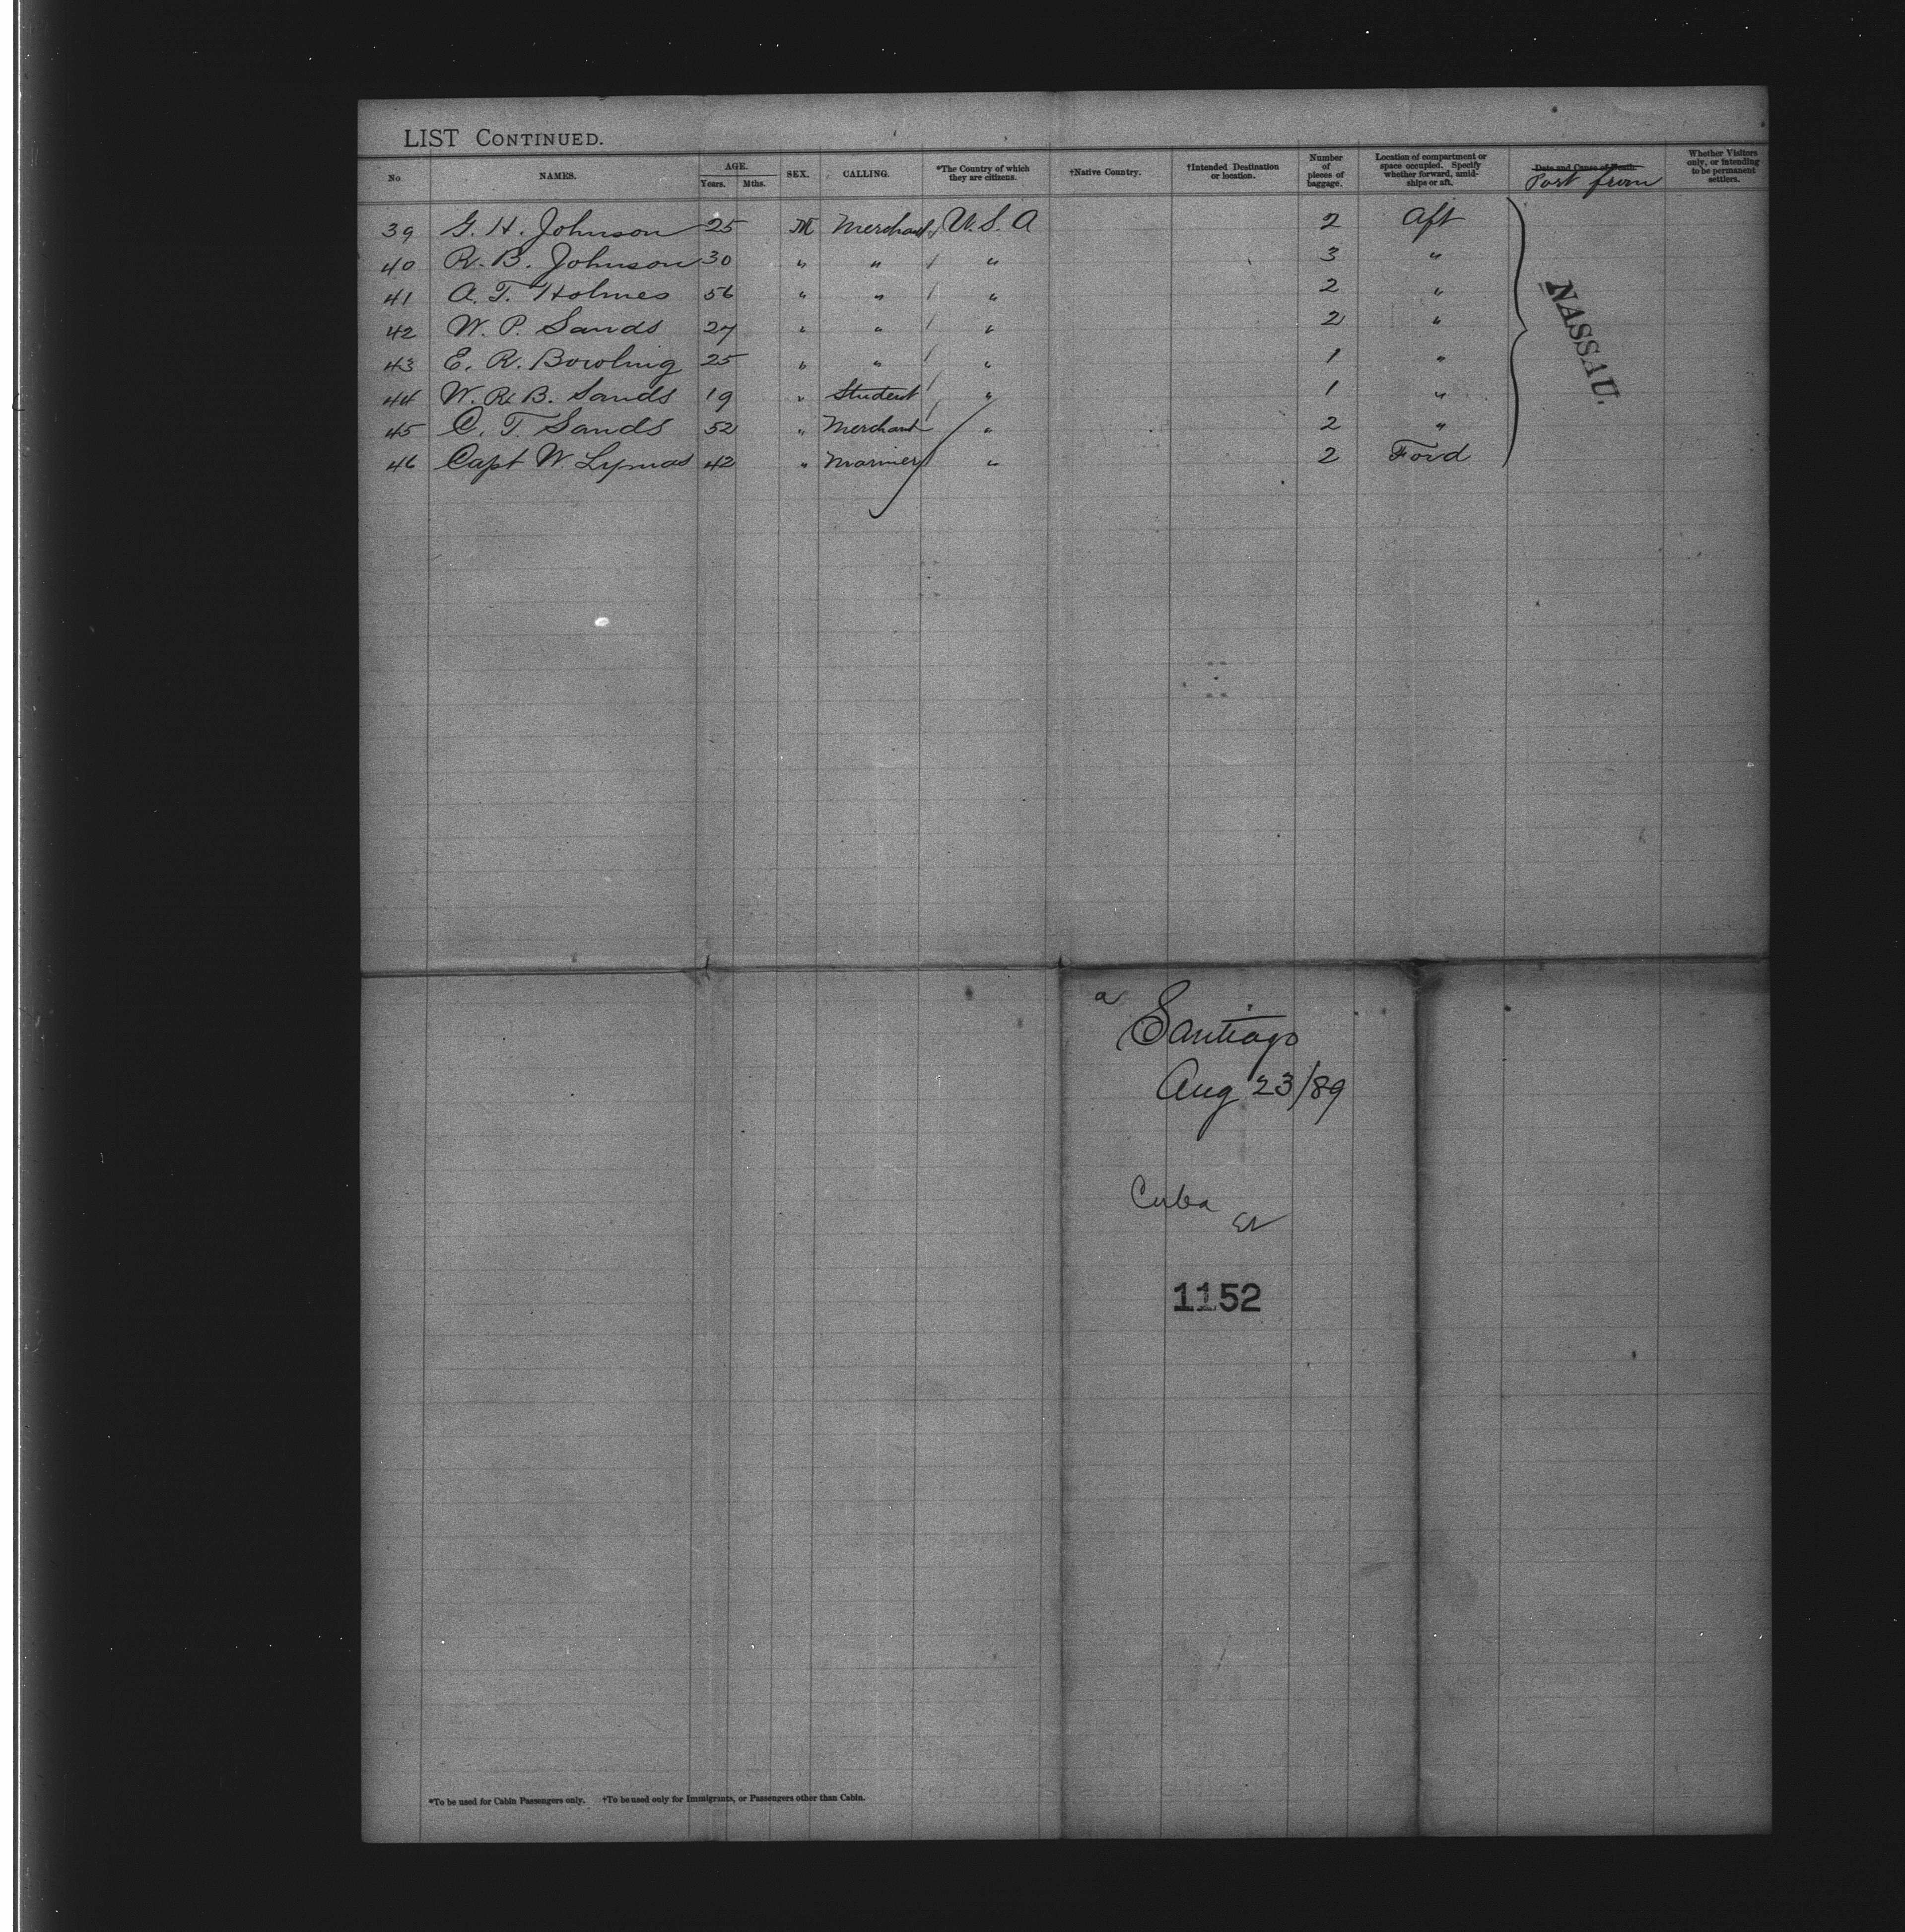 LIST CONTINUED.
No. NAMES. AGE. Years. Mths. SEX. CALLING. *The Country of which they are citizens. †Native Country. †Intended Destination or location. Number of pieces of baggage. Location of compartment or space occupied. Specify whether forward, amid-ships or aft. Date and Cause of Death. Whether Visitors only, or intending to be permanent settlers.
Port from
39 G. H. Johnson 25 M Merchant U.S.A 2 Aft
40 R. B. Johnson 30 " " " 3 "
41 A. T. Holmes 56 " " " 2 "
42 W. P. Sands 27 " " " 2 "
43 E. R. Bowling 25 " " " 1 "
44 W. R. B. Sands 19 " Student " 1 "
45 C. T. Sands 52 " Merchant " 2 "
46 Capt W. Lymas 42 " Mariner " 2 Ford
NASSAU.
a
Santiago
Aug 23/89
Cuba
1152
*To be used for Cabin Passengers only. †To be used only for Immigrants, or Passengers other than Cabin.